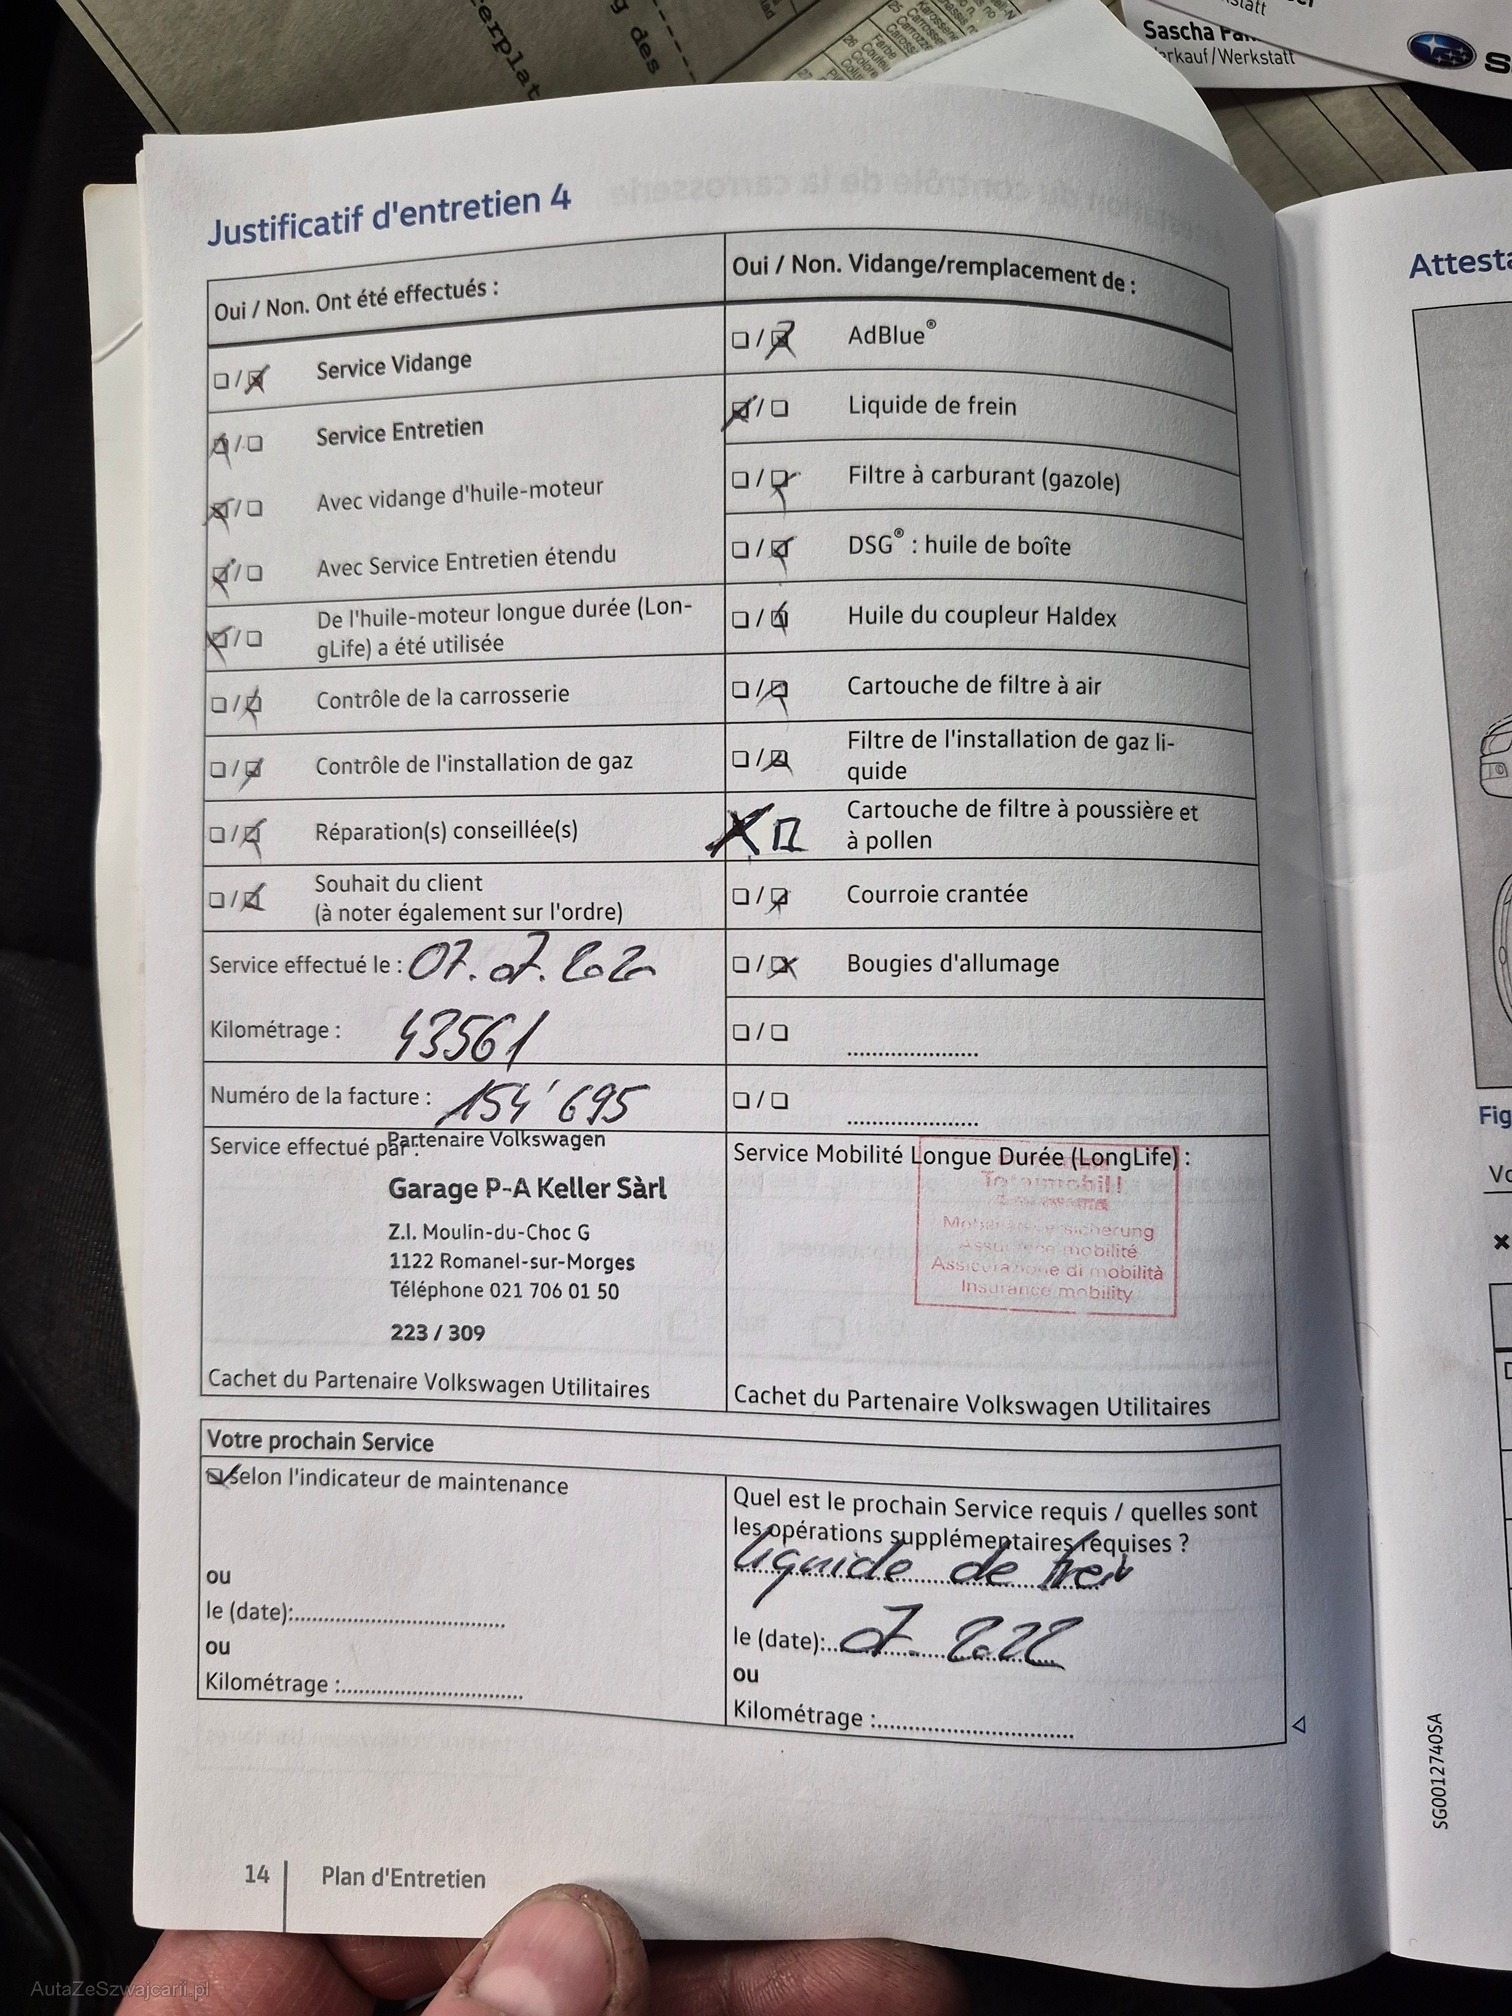 erplat
g des
Sascha
erkauf/Werkstatt
Justificatif d'entretien 4
Oui / Non. Ont été effectués :
Service Vidange
Service Entretien
Avec vidange d'huile-moteur
Avec Service Entretien étendu
De l'huile-moteur longue durée (Lon-
gLife) a été utilisée
Contrôle de la carrosserie
Contrôle de l'installation de gaz
Réparation(s) conseillée(s)
Souhait du client
(à noter également sur l'ordre)
Service effectué le : 07.07.2020
Kilométrage : 43561
Numéro de la facture : 154'695
Service effectué par :
Partenaire Volkswagen
Garage P-A Keller Sàrl
Z.I. Moulin-du-Choc G
1122 Romanel-sur-Morges
Téléphone 021 706 01 50
223 / 309
Cachet du Partenaire Volkswagen Utilitaires
Oui / Non. Vidange/remplacement de :
AdBlue®
Liquide de frein
Filtre à carburant (gazole)
DSG® : huile de boîte
Huile du coupleur Haldex
Cartouche de filtre à air
Filtre de l'installation de gaz li-
quide
Cartouche de filtre à poussière et
à pollen
Courroie crantée
Bougies d'allumage
Service Mobilité Longue Durée (LongLife) :
Totalmobil!
Assicurazione di mobilità
Insurance mobility
Cachet du Partenaire Volkswagen Utilitaires
Votre prochain Service
selon l'indicateur de maintenance
ou
le (date):
ou
Kilométrage :
Quel est le prochain Service requis / quelles sont
les opérations supplémentaires requises ?
liquide de frein
le (date): 07.2022
ou
Kilométrage :
14 Plan d'Entretien
Attesta
Fig
SG0012740SA
AutaZeSzwajcarii.pl